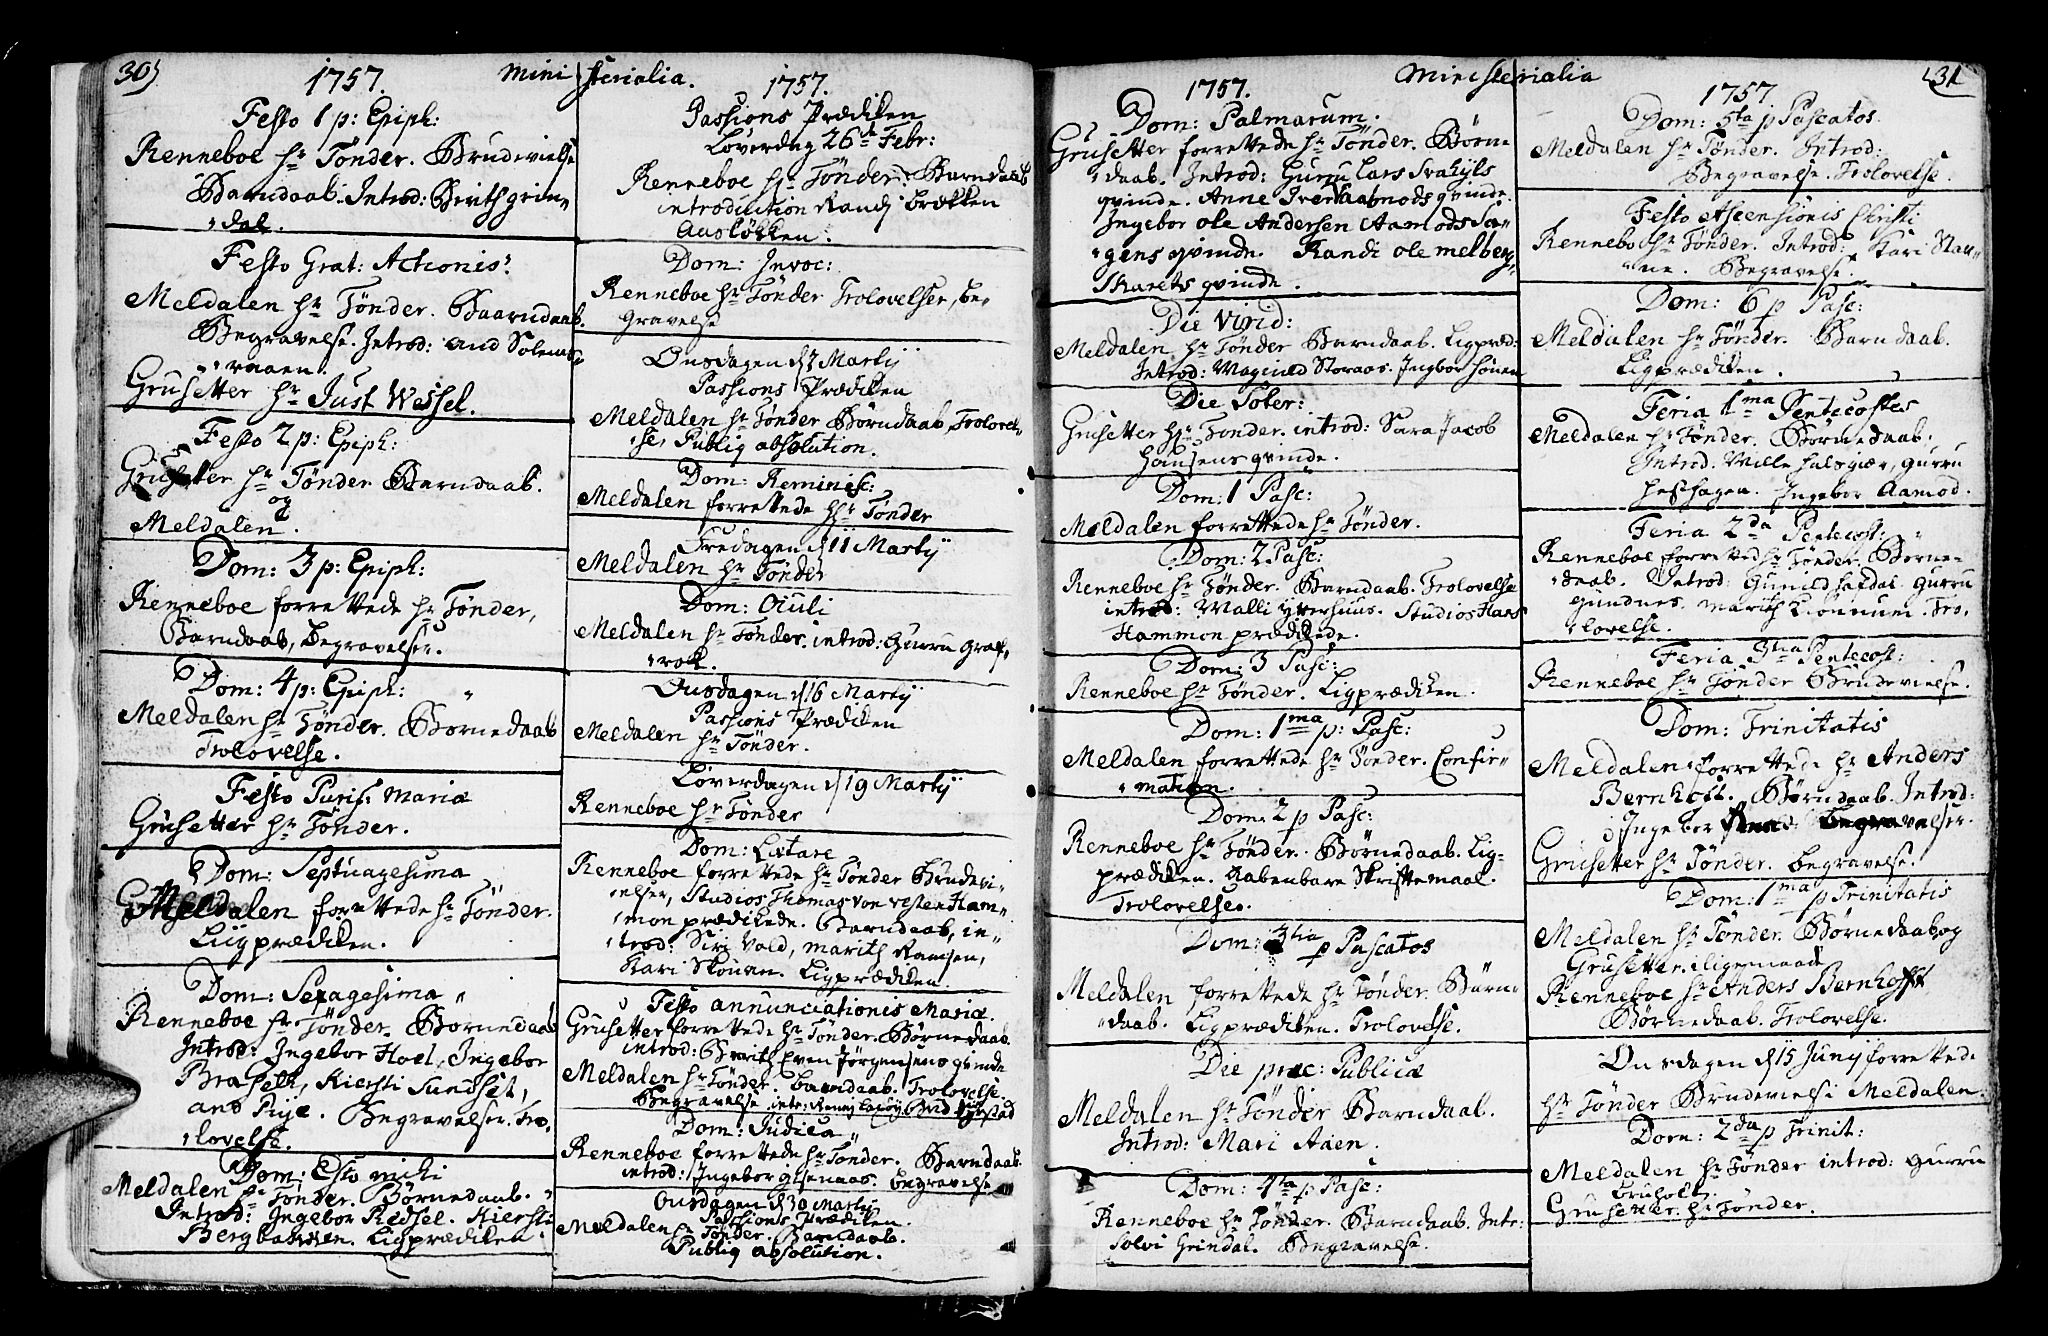 30
1757.
Ministerialia.
Festo 1 p: Epiph:
Renneboe hr Tönder. Brudevielse
Barndaab. Introd: Birth grin„
„dal.
Festo Grat: Actionis
Meldalen hr Tönder. Baarndaab.
Begravelse. Introd: and Solem„
„raaen.
Grusetter hr Just Wessel.
Festo 2 p: Epiph:
Grusetter hr Tönder Barndaab.
og
Meldalen.
Dom: 3 p: Epiph:
Renneboe forrettede hr Tönder,
Barndaab, begravelser.
Dom: 4 p: Epiph:
Meldalen hr Tönder. Börnedaab
Trolovelse.
Festo Purif: Mariæ
Grusetter hr Tönder.
Dom: Septuagesima
Meldalen forrettede hr Tönder.
Liigprædiken.
Dom: Sexagesima
Renneboe hr Tönder. Börnedaab
Introd: Ingebor Hoel, Ingebor
Braset, Kiersti Sundset,
and Rye. Begravelser. Tro„
„lovelse.
Dom: Esto mihi
Meldalen hr Tönder. Börnedaab.
Introd: Ingebor Redsel. Kiersti
Bergbakken. Ligprædiken.
1757.
Passions Prædiken
Löverdag 26de Febr:
Renneboe hr Tönder. Barndaab
introduction Randj Brækken
Auslökken.
Dom: Invoc:
Renneboe hr Tönder Trolovelser, be„
gravelse
Onsdagen d Martij
Passions Prædiken
Meldalen hr Tönder Börndaab, Trolovel„
„se, Publiq absolution.
Dom: Reminisc:
Meldalen forrettede hr Tönder
Fredagen d 11 Martij
Meldalen hr Tönder
Dom: Oculi
Meldalen hr Tönder. introd: Gurru Graf„
„rok.
Onsdagen d 16 Martij
Passions Prædiken
Meldalen hr Tönder.
Löverdagen d 19 Martij
Renneboe hr Tönder
Dom: Lætare
Renneboe forrettede hr Tönder Brudevi„
„elser, Studios Thomas von Westen Ham„
„mon prædikede. Barndaab, in„
„trod: Siri Vold, Marith Ramsen,
Kari Skouan. Ligprædiken.
Festo annunciationis Mariæ.
Grusetter forrettede hr Tönder. Börnedaab.
introd: Brith Even Jörgensens qvinde
Meldalen hr Tönder. barndaab. Trolovelse.
Begravelse
Dom: Judica
Renneboe forrettede hr Tönder. Barndaab.
introd: Ingebor Gisenaas. begravelse
Onsdagen d 30 Martij
Passions Prædiken.
Meldalen hr Tönder. Barndaab.
Publiq absolution.
31
1757.
Ministerialia
Dom: Palmarum.
Grusetter forrettede hr Tönder. Börne
„daab. Introd: Gurru Lars
qvinde. Anne Iver Aamods qvinde
Ingebor Ole Andersen Aamods Sa„
„gens qvinde. Randi Ole Melberg„
Skarets qvinde.
Die Virid:
Meldalen hr Tönder Barndaab. Ligpræd:
Introd: Magnild Storaas. Ingbor hönen
Die Soter:
Grusetter hr Tönder. introd: Sara Jacob
Hansens qvinde.
Dom: 1 Pasc:
Meldalen forrettede hr Tönder.
Dom: 2 Pasc:
Renneboe hr Tönder. Barndaab. Trolovelse
introd: Walli Yverhuus. Studios Hans
Hammon prædikede.
Dom: 3 Pasc:
Renneboe hr Tönder. Ligprædiken.
Dom: 1ma p: Pasc:
Meldalen forrettede hr Tönder. Confir„
„mation.
Dom: 2 p Pasc:
Renneboe hr Tönder. Börnedaab. Lig„
prædiken. Aabenbare Skriftemaal.
Trolovelse.
Dom: 3tia p Pascatos
Meldalen forrettede hr Tönder. Börne
„daab. Ligprædiken. Trolovelse.
Die prec: Publicæ
Meldalen hr Tönder Barndaab.
Introd: Mari Aaen.
Dom: 4ta p Pasc:
Renneboe hr Tönder. Barndaab. Intr:
Solvi Grindal. Begravelse.
1757
Dom: 5ta p Pascatos.
Meldalen hr Tönder. Introd:
Begravelse. Trolovelse.
Festo Ascensionis Christi
Renneboe hr Tönder. Introd: Kari Stau„
„ne. Begravelse.
Dom: 6 p Pasc:
Meldalen hr Tönder. Barndaab.
Ligprædiken.
Feria 1ma Pentecostes
Meldalen hr Tönder. Börnedaab.
Introd. Wille halsgiær, Gurru
Heshagen. Ingebor Aamod.
Feria 2da Pentecost:
Renneboe forrettede hr Tönder. Börne„
„daab. Introd: Gunild Hefdal Gurru
Gundnes. Marith. Tro„
„lovelse.
Feria 3tia Pentecost:
Renneboe hr Tönder Brudevielse.
Dom: Trinitatis
Meldalen forrettede hr Anders
Bernhoft. Börndaab. Introd:
Ingebor begravelser.
Grusetter hr Tönder. begravelse.
Dom: 1ma p Trinitatis
Meldalen hr Tönder. Börnedaab og
Grusetter iligemaade
Renneboe hr Anders Bernhoft
Börnedaab. Trolovelse.
Onsdagen d 15 Junij forrettede
hr Tönder Brudevielse Meldalen.
Dom: 2da p Trinit:
Meldalen hr Tönder introd: Gurru
bruholt.
Grusetter hr Tönder.